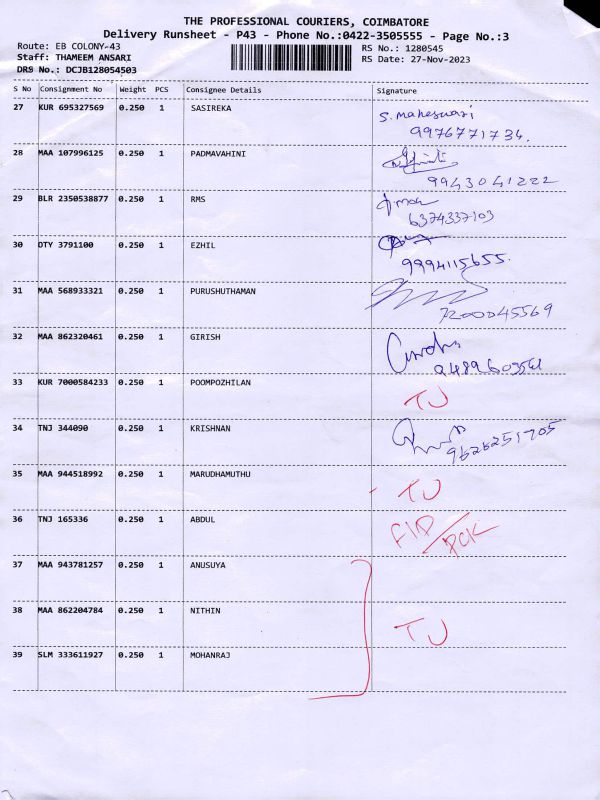 THE PROFESSIONAL COURIERS, COIMBATORE
Delivery Runsheet - P43 - Phone No.:0422-3505555 - Page No.:3
Route: EB COLONY-43 RS No.: 1280545
Staff: THAMEEM ANSARI RS Date: 27-Nov-2023
DRS No.: DCJB128054503
S No Consignment No Weight PCS Consignee Details Signature
27 KUR 695327569 0.250 1 SASIREKA S. maheswari
9976771734.
28 MAA 107996125 0.250 1 PADMAVAHINI
9943041222
29 BLR 2350538877 0.250 1 RMS
6374337103
30 DTY 3791100 0.250 1 EZHIL
9994115655.
31 MAA 568933321 0.250 1 PURUSHUTHAMAN
7200045569
32 MAA 862320461 0.250 1 GIRISH
33 KUR 7000584233 0.250 1 POOMPOZHILAN TJ
34 TNJ 344090 0.250 1 KRISHNAN
35 MAA 944518992 0.250 1 MARUDHAMUTHU TJ
36 TNJ 165336 0.250 1 ABDUL
37 MAA 943781257 0.250 1 ANUSUYA
38 MAA 862204784 0.250 1 NITHIN TJ
39 SLM 333611927 0.250 1 MOHANRAJ